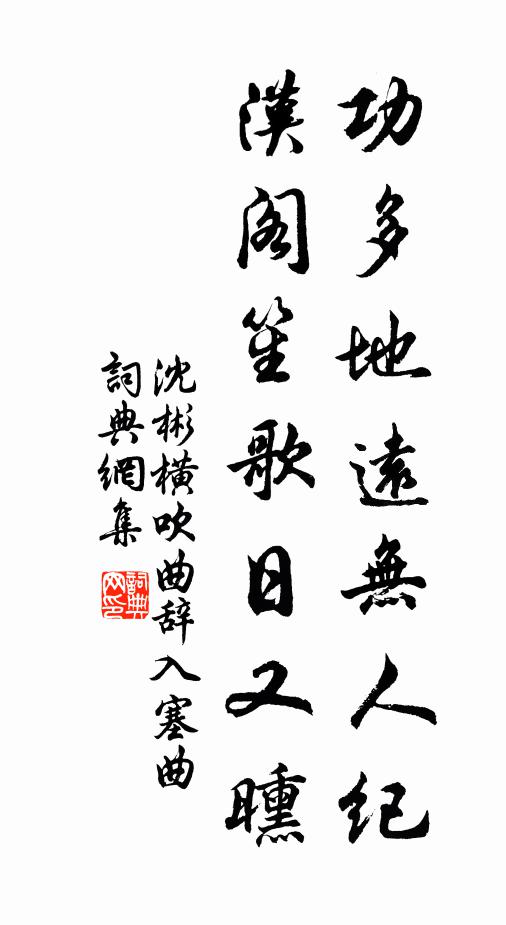 功多地遠無人紀
漢閣笙歌日又曛
沈彬橫吹曲辞入塞曲
詞典網集
詞典网印